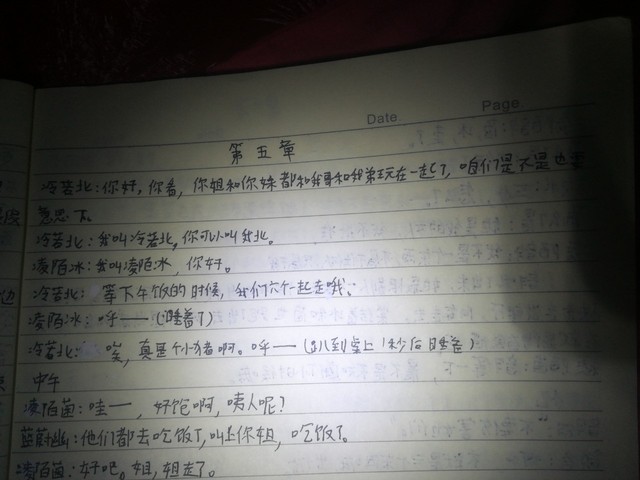 Date Page
第五章
冷若北:你好,你看,你姐和你妹都和我哥和我弟玩在一起了,咱们是不是也要
意思下。
冷若北:我叫冷若北,你可以叫我北。
凌陌冰:我叫凌陌冰,你好。
冷若北:等下午饭的时候,我们六个一起走哦。
凌陌冰:呼——(睡着了)
冷若北:唉,真是个小猪啊。呼——(趴到桌上1秒后睡着)
中午
凌陌茵:哇——,好饱啊,咦人呢?
蓝蔚幽:他们都去吃饭了,叫上你姐,吃饭了。
凌陌茵:好吧。姐,姐走了。